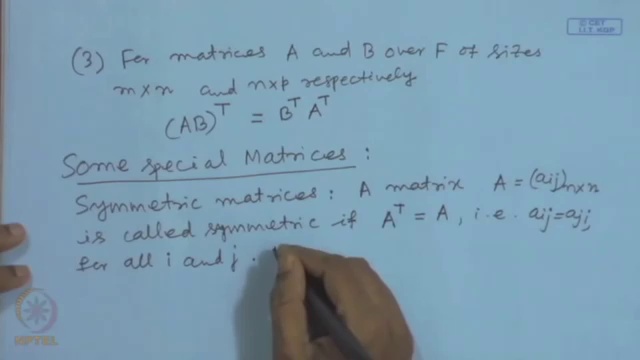 (3) For matrices A and B over F of sizes
m×n and n×p respectively
(AB)^T = B^T A^T
Some special Matrices :
Symmetric matrices : A matrix A = (aij)n×n
is called symmetric if A^T = A, i.e. aij = aji,
for all i and j.
NPTEL